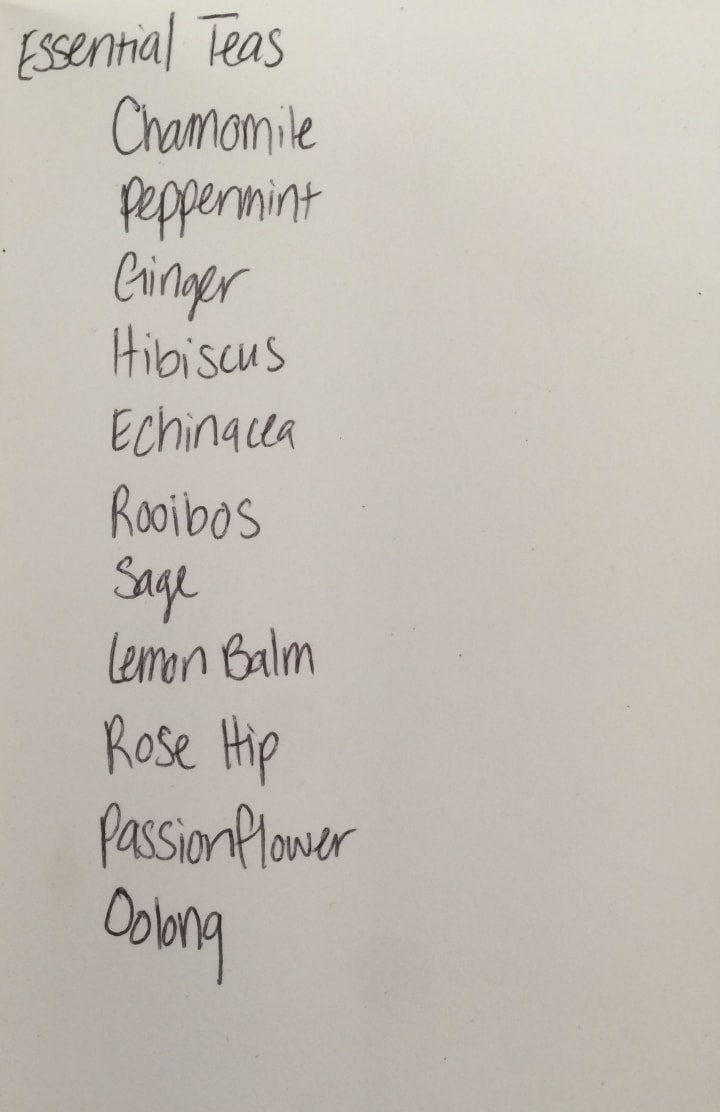 Essential Teas
Chamomile
Peppermint
Ginger
Hibiscus
Echinacea
Rooibos
Sage
Lemon Balm
Rose Hip
Passionflower
Oolong